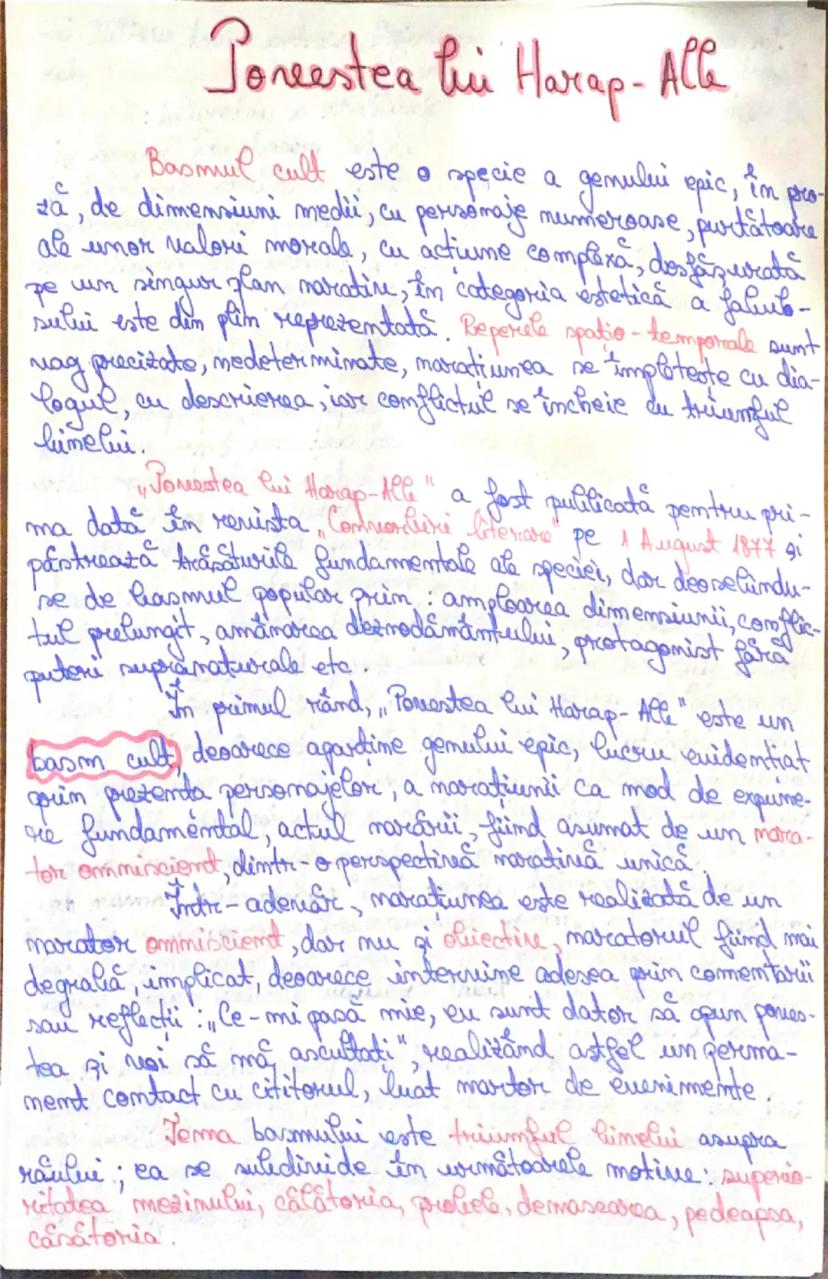 Povestea lui Harap-Alb
Basmul cult este o specie a genului epic, în pro-
ză, de dimensiuni medii, cu personaje numeroase, purtătoare
ale unor valori morale, cu acțiune complexă, desfășurată
pe un singur plan narativ, în categoria estetică a fabulo-
sului este din plin reprezentată. Reperele spatio-temporale sunt
vag precizate, nedeterminate, narațiunea se împletește cu dia-
logul, cu descrierea, iar conflictul se încheie cu triumful
binelui.
„Povestea lui Harap-Alb" a fost publicată pentru pri-
ma dată în revista „Convorbiri literare" pe 1 August 1877 și
păstrează trăsăturile fundamentale ale speciei, dar deosebindu-
se de basmul popular prin: amploarea dimensiunii, conflic-
tul prelungit, amânarea deznodământului, protagonist fără
puteri supranaturale etc.
În primul rând, „Povestea lui Harap-Alb" este un
basm cult, deoarece aparține genului epic, lucru evidentiat
prin prezența personajelor, a narațiunii ca mod de expune-
re fundamental, actul narării, fiind asumat de un nara-
tor omniscient, dintr-o perspectivă narativă unică.
Într-adevăr, narațiunea este realizată de un
narator omniscient, dar nu și obiectiv, naratorul fiind mai
degrabă, implicat, deoarece intervine adesea prin comentarii
sau reflecții: „Ce-mi pasă mie, eu sunt dator să spun poves-
tea și voi să mă ascultați", realizând astfel un perma-
nent contact cu cititorul, luat martor de evenimente.
Tema basmului este triumful binelui asupra
răului; ea se subdivide în următoarele motive: superio-
ritatea mezinului, călătoria, probele, demascarea, pedeapsa,
căsătoria.